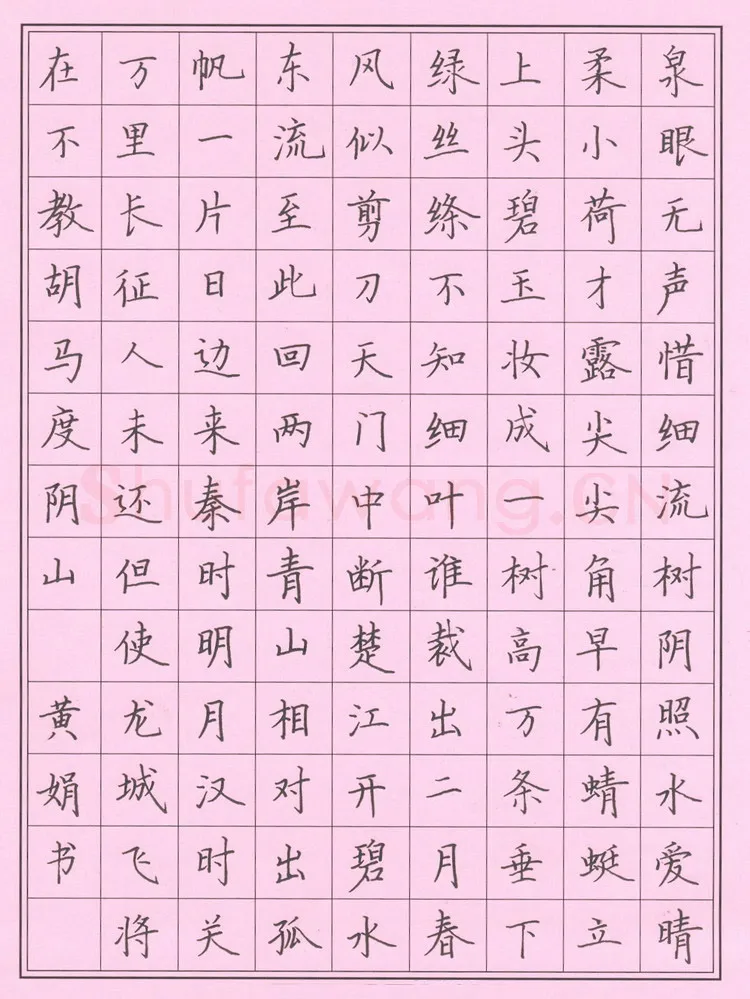 泉眼无声惜细流树阴照水爱晴
柔小荷才露尖尖角早有蜻蜓立
上头碧玉妆成一树高万条垂下
绿丝绦不知细叶谁裁出二月春
风似剪刀天门中断楚江开碧水
东流至此回两岸青山相对出孤
帆一片日边来秦时明月汉时关
万里长征人未还但使龙城飞将
在不教胡马度阴山 黄娟书
Shufawang.CN